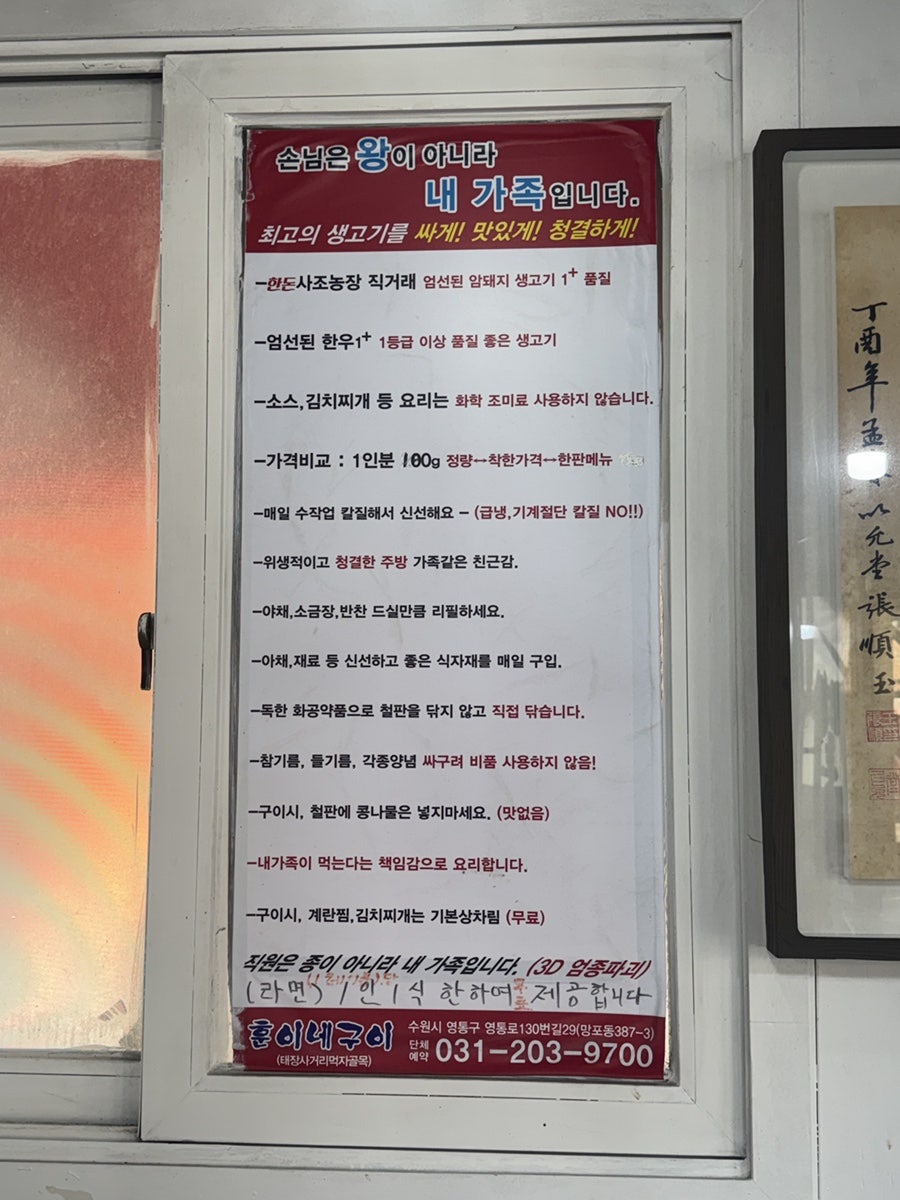 손님은 왕이 아니라
내 가족입니다.
최고의 생고기를 싸게! 맛있게! 청결하게!
-한돈사조농장 직거래 엄선된 암돼지 생고기 1+ 품질
-엄선된 한우1+ 1등급 이상 품질 좋은 생고기
-소스,김치찌개 등 요리는 화학 조미료 사용하지 않습니다.
-가격비교 : 1인분 100g 정량↔착한가격↔한판메뉴
-매일 수작업 칼질해서 신선해요 - (급냉,기계절단 칼질 NO!!)
-위생적이고 청결한 주방 가족같은 친근감.
-야채,소금장,반찬 드실만큼 리필하세요.
-아채,재료 등 신선하고 좋은 식자재를 매일 구입.
-독한 화공약품으로 철판을 닦지 않고 직접 닦습니다.
-참기름, 들기름, 각종양념 싸구려 비품 사용하지 않음!
-구이시, 철판에 콩나물은 넣지마세요. (맛없음)
-내가족이 먹는다는 책임감으로 요리합니다.
-구이시, 계란찜,김치찌개는 기본상차림 (무료)
직원은 종이 아니라 내 가족입니다. (3D 업종파괴)
(라면) 1인 1식 한하여 무료 제공합니다
훈이네구이
(태장사거리먹자골목)
수원시 영통구 영통로130번길29(망포동387-3)
단체예약 031-203-9700
丁酉年孟 以允堂張順玉